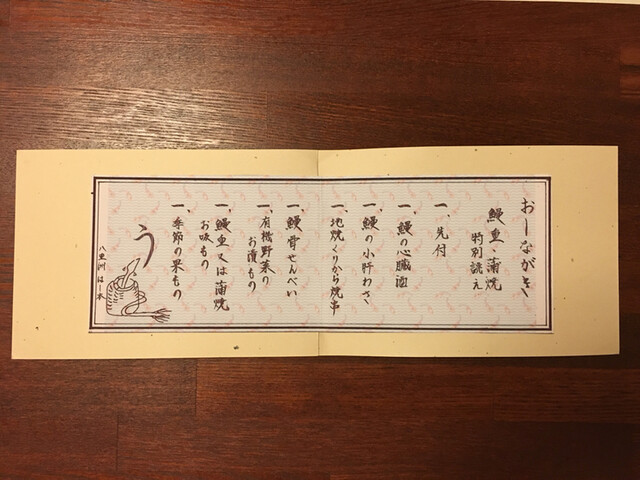 おしながき
鰻重・蒲焼
特別誂え
一、先付
一、鰻の心臓
一、鰻の小肝わさ
一、地焼くりから焼串
一、鰻骨せんべい
一、有機野菜の
お漬もの
一、鰻重又は蒲焼
お吸もの
一、季節の果もの
う
八重洲 はし本